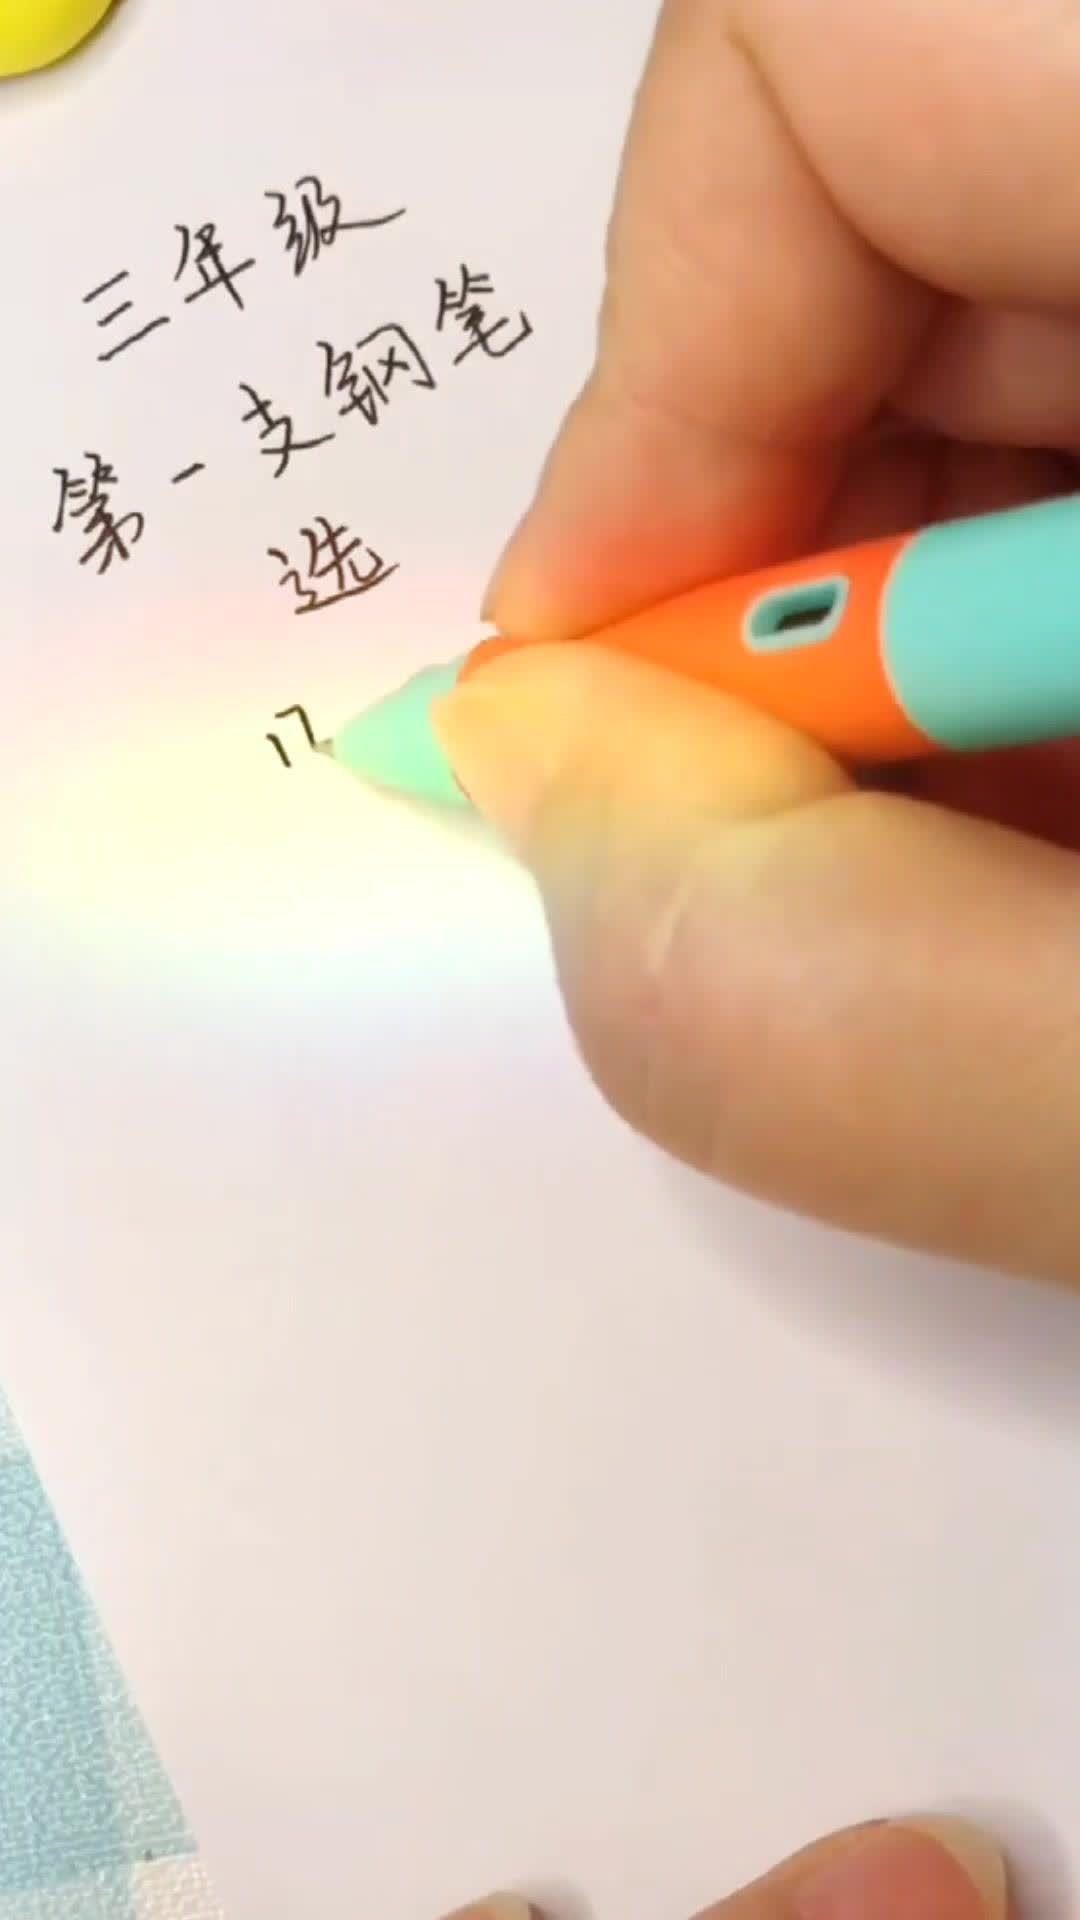 三年级
第一支钢笔
选